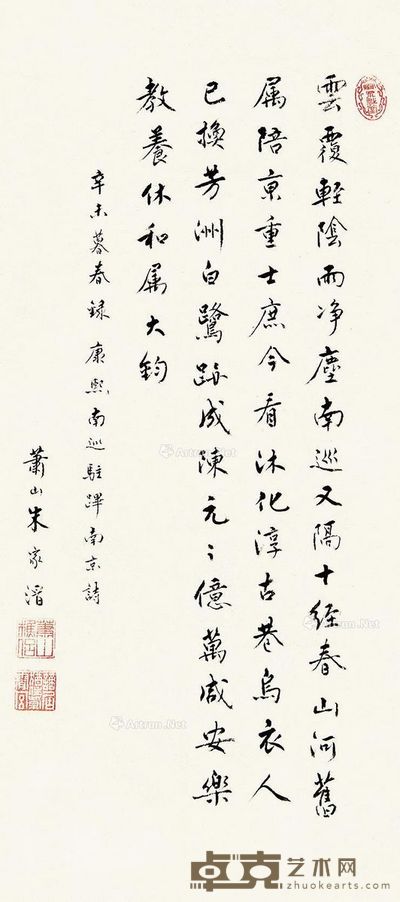 雲覆輕陰雨净塵南巡又隔十經春山河舊
属陪京重士庶今看沐化淳古巷烏衣人
已換芳洲白鷺跡成陳元〻億萬咸安樂
教養休和属大鈞
辛未暮春録康熙南巡駐蹕南京詩
蕭山朱家溍
Artron.Net
Artron.Net
Artron.Net
卓克艺术网
zhuokearts.com